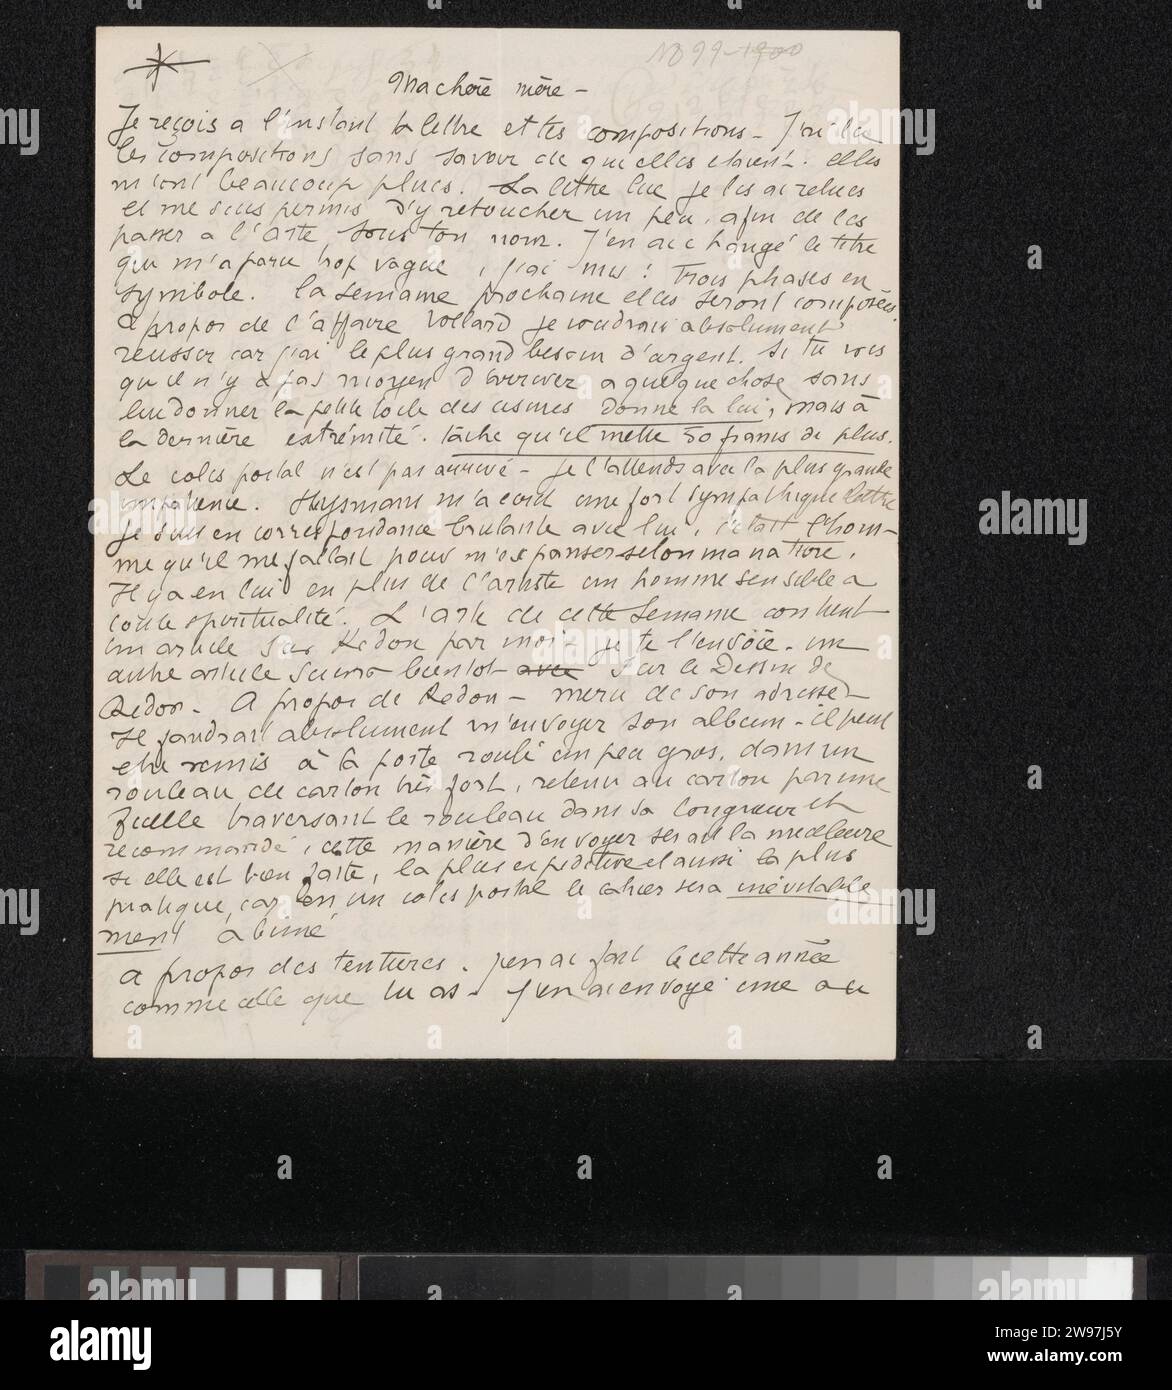 1899-1900
Ma chère mère -
Je reçois a l'instant ta lettre et tes compositions - J'ai lu
les compositions sans savoir de qui elles etaient. elles
m'ont beaucoup plues. La lettre lue je les ai relues
et me suis permis d'y retoucher un peu, afin de les
passer a l'arte, sous ton nom. J'en ai changé le titre
qui m'a paru trop vague, j'ai mis: Trois phases en
symbole. la semaine prochaine elles seront composées.
a propos de l'affaire Vollard je voudrais absolument
reussir car j'ai le plus grand besoin d'argent. Si tu vois
qu'il n'y a pas moyen d'arriver a quelque chose sans
lui donner la petite toile des usines donne la lui, mais à
la dernière extrémité. tâche qu'il mette 50 francs de plus.
Le colis postal n'est pas arrivé - je l'attends avec la plus grande
impatience. Huysmans m'a ecrit une fort sympathique lettre
je suis en correspondance brulante avec lui, c'etait l'hom-
me qu'il me fallait pour m'expanser selon ma nature.
Il y a en lui en plus de l'artiste un homme sensible a
toute spiritualité. L'arte de cette semaine contient
un article sur Redon par moi - je te l'envoie. un
autre article suivra bientot avec sur le Dessin de
Redon. A propos de Redon - merci de son adresse -
Il faudrait absolument m'envoyer son album - il peut
etre remis à la poste roulé un peu gros, dans un
rouleau de carton très fort, retenu au carton par une
ficelle traversant le rouleau dans sa longueur et
recommandé, cette manière d'envoyer serait la meilleure
si elle est bien faite, la plus expeditive et aussi la plus
pratique, car en un colis postal le cahier sera inévitable
ment abimé
a propos des tentures. j'en ai fait cette année
comme celle que tu as - j'en ai envoyé une au
alamy
Image ID: 2W97J5Y
www.alamy.com